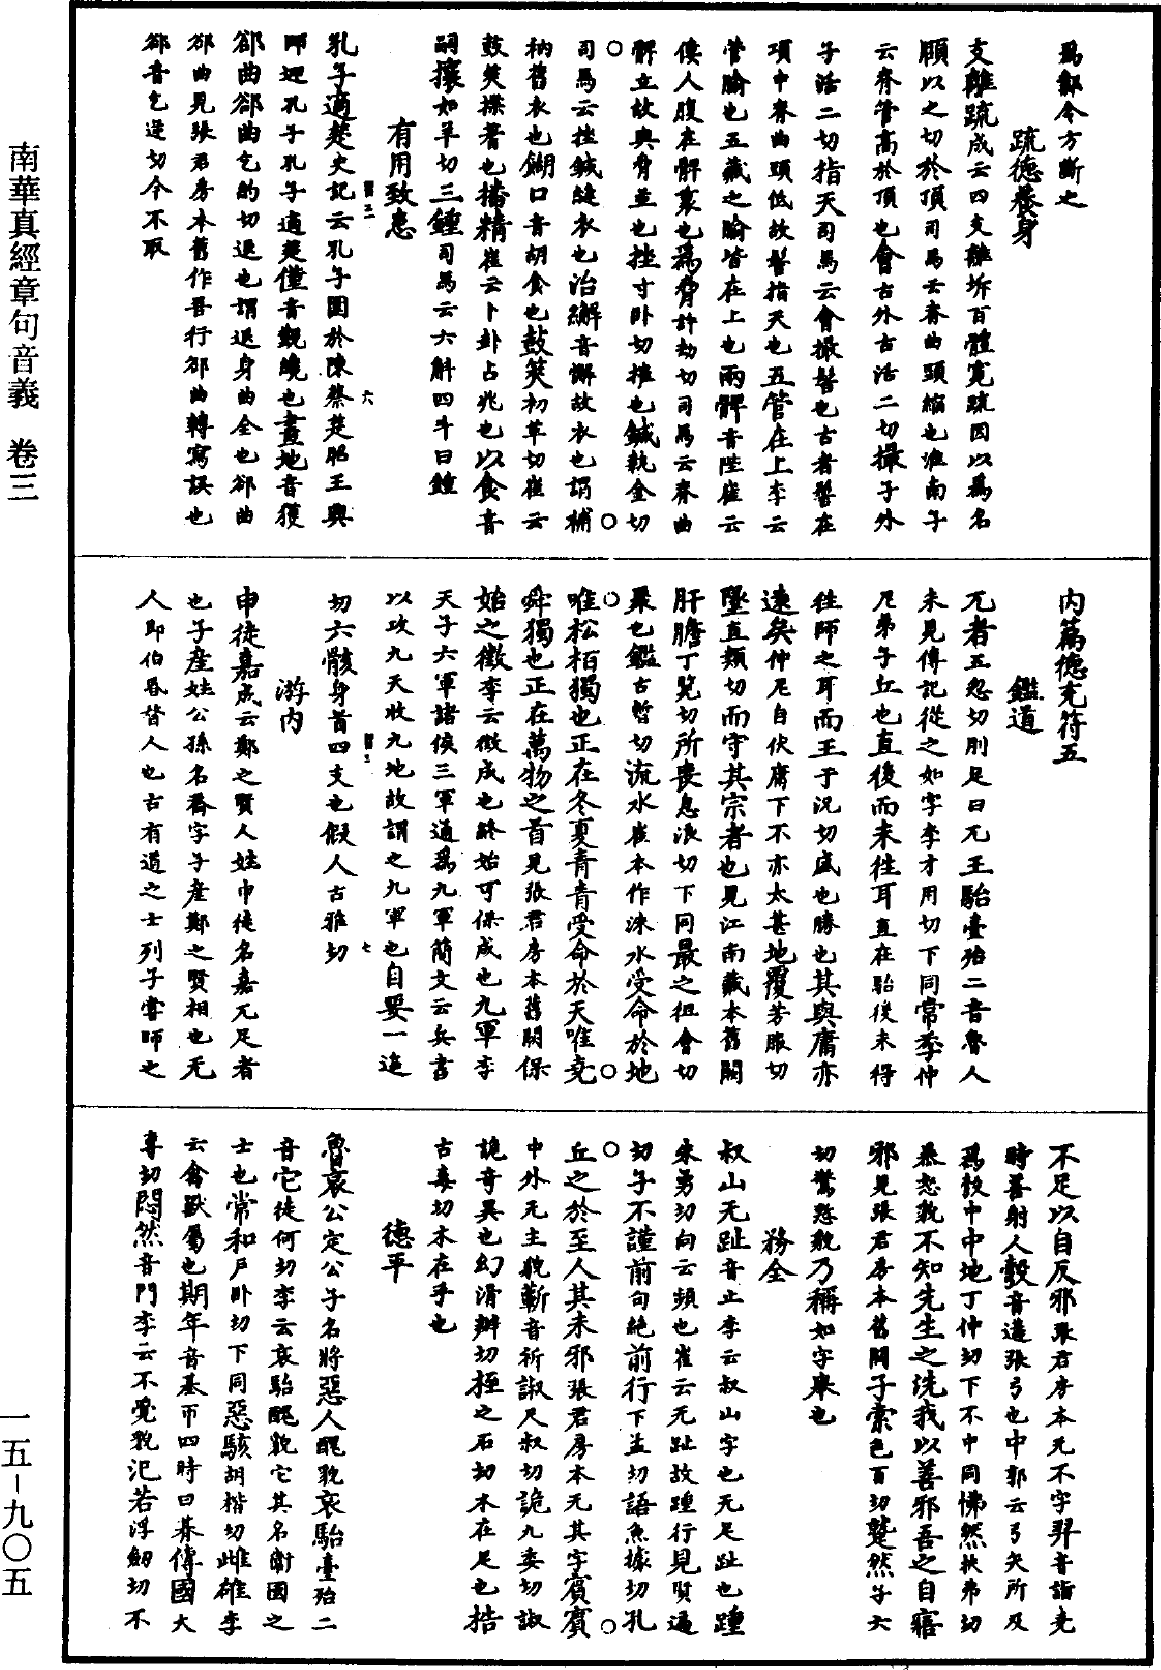 南華真經章句音義　卷三
一五－九〇五
爲鄰令方斷之
疏德養身
支離疏成云四支離坼百體寬疏因以爲名
頤以之切於頂司馬云脊曲頸縮也淮南子
云脊管高於頂也會古外古活二切撮子外
子活二切指天司馬云會撮髻也古者髻在
項中脊曲頭低故髻指天也五管在上李云
管腧也五藏之腧皆在上也兩髀音陛崔云
僂人腹在髀裏也爲脅許劫切司馬云脊曲
髀立故與脅並也挫寸卧切摧也鍼執金切
司馬云挫鍼縫衣也治繲音懈故衣也謂補
衲舊衣也餬口音胡食也鼓筴初革切崔云
鼓筴揲蓍也播精崔云卜卦占兆也以食音
嗣攘如羊切三鍾司馬云六斛四斗曰鍾
有用致患
孔子適楚史記云孔子圍於陳蔡楚昭王興
師迎孔子孔子適楚僮音觀曉也畫地音獲
郤曲郤曲乞的切退也謂退身曲全也郤曲
郤曲見張君房本舊作吾行郤曲轉寫誤也
郤音乞逆切今不取
內篇德充符五
鑑道
兀者五忽切刖足曰兀王駘臺殆二音魯人
未見傳記從之如字李才用切下同常季仲
尼弟子丘也直後而未往耳直在駘後未得
往師之耳而王于況切盛也勝也其與庸亦
遠矣仲尼自伏庸下不亦太甚地覆芳服切
墜直類切而守其宗者也見江南藏本舊闕
肝膽丁覧切所喪息浪切下同最之徂會切
聚也鑑古暫切流水崔本作沬水受命於地
唯松栢獨也正在冬夏青青受命於天唯堯
舜獨也正在萬物之首見張君房本舊闕保
始之徵李云徵成也終始可保成也九軍李
天子六軍諸侯三軍通爲九軍簡文云兵書
以攻九天收九地故謂之九軍也自要一遥
切六骸身首四支也假人古雅切
游內
申徒嘉成云鄭之賢人姓申徒名嘉兀足者
也子產姓公孫名僑字子產鄭之賢相也无
人即伯昏瞀人也古有道之士列子嘗師之
不足以自反邪張君房本无不字羿音詣堯
時善射人彀音遘張弓也中郭云弓矢所及
爲彀中中地丁仲切下不中同怫然扶弗切
暴怒貌不知先生之洗我以善邪吾之自寤
邪見張君房本舊闕子索色百切蹵然子六
切驚慙貌乃稱如字舉也
務全
叔山无趾音止李云叔山字也无足趾也踵
朱勇切向云頻也崔云无趾故踵行見賢遍
切子不謹前句絶前行下孟切語魚據切孔
丘之於至人其未邪張君房本无其字賓賓
中外无主貌蘄音祈諔尺叔切詭九委切諔
詭奇異也幻滑辦切桎之石切木在足也梏
古毒切木在手也
德平
魯哀公定公子名將惡人醜貌哀駘臺殆二
音它徒何切李云哀駘醜貌它其名衛國之
士也常和戶卧切下同惡駭胡楷切雌雄李
云禽獸屬也期年音基帀四時曰朞傳國大
專切悶然音門李云不覺貌氾若浮劒切不